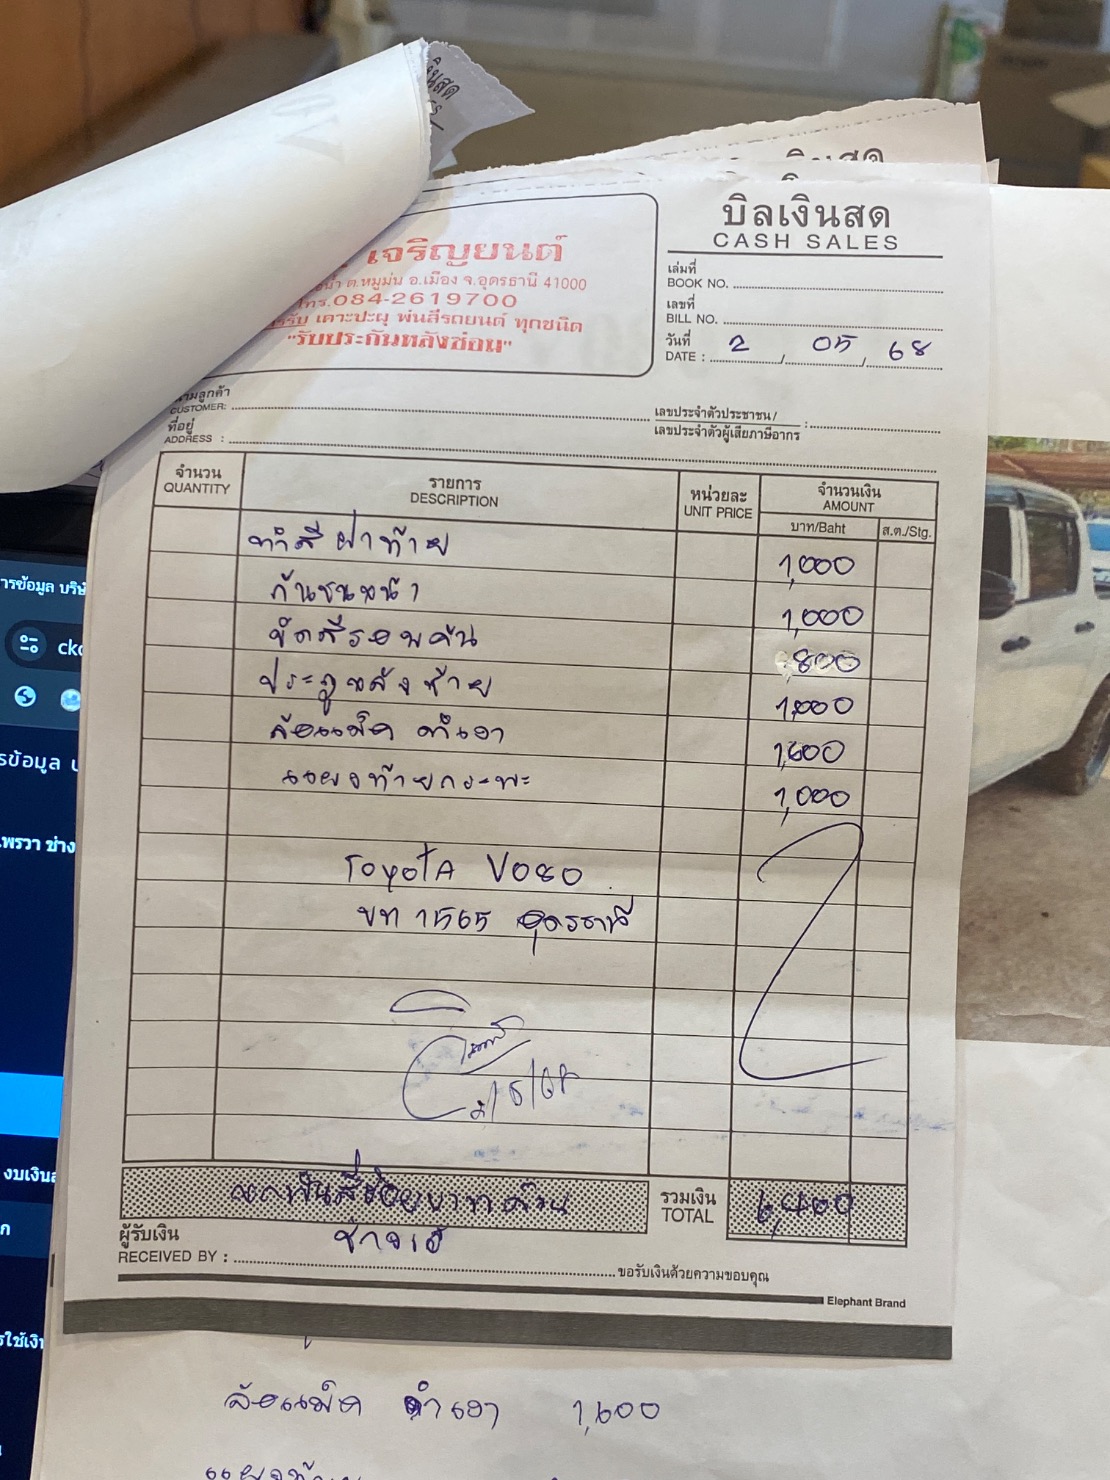 เงินสด
บิลเงินสด
CASH SALES
เจริญยนต์
ต.หมูม่น อ.เมือง จ.อุดรธานี 41000
โทร.084-2619700
เคาะปะผุ พ่นสีรถยนต์ ทุกชนิด
"รับประกันหลังซ่อม"
เล่มที่
BOOK NO.
เลขที่
BILL NO.
วันที่
DATE : 2 / 05 / 68
นามลูกค้า
CUSTOMER:
ที่อยู่
ADDRESS :
เลขประจำตัวประชาชน/
เลขประจำตัวผู้เสียภาษีอากร :
จำนวน
QUANTITY
รายการ
DESCRIPTION
หน่วยละ
UNIT PRICE
จำนวนเงิน
AMOUNT
บาท/Baht
ส.ต./Stg.
ทำสี ฝาท้าย 1,000
กันชนหน้า 1,000
ขัดสีรอบคัน 800
ประตูหลังซ้าย 1,000
ล้อแม็ค ดำเงา 1,600
แผงท้ายกระพะ 1,000
ToyotA VO80
บท 1565 อุดรธานี
2/5/68
หกพันสี่ร้อยบาทถ้วน
รวมเงิน
TOTAL
6,400
ผู้รับเงิน
RECEIVED BY : ช่างเอ๋
ขอรับเงินด้วยความขอบคุณ
Elephant Brand
ล้อแม็ค ดำเงา 1,600
ารข้อมูล บริษั
ckc
รข้อมูล
เพรวา ช่าง
งบเงินส
ก
รใช้เงิน